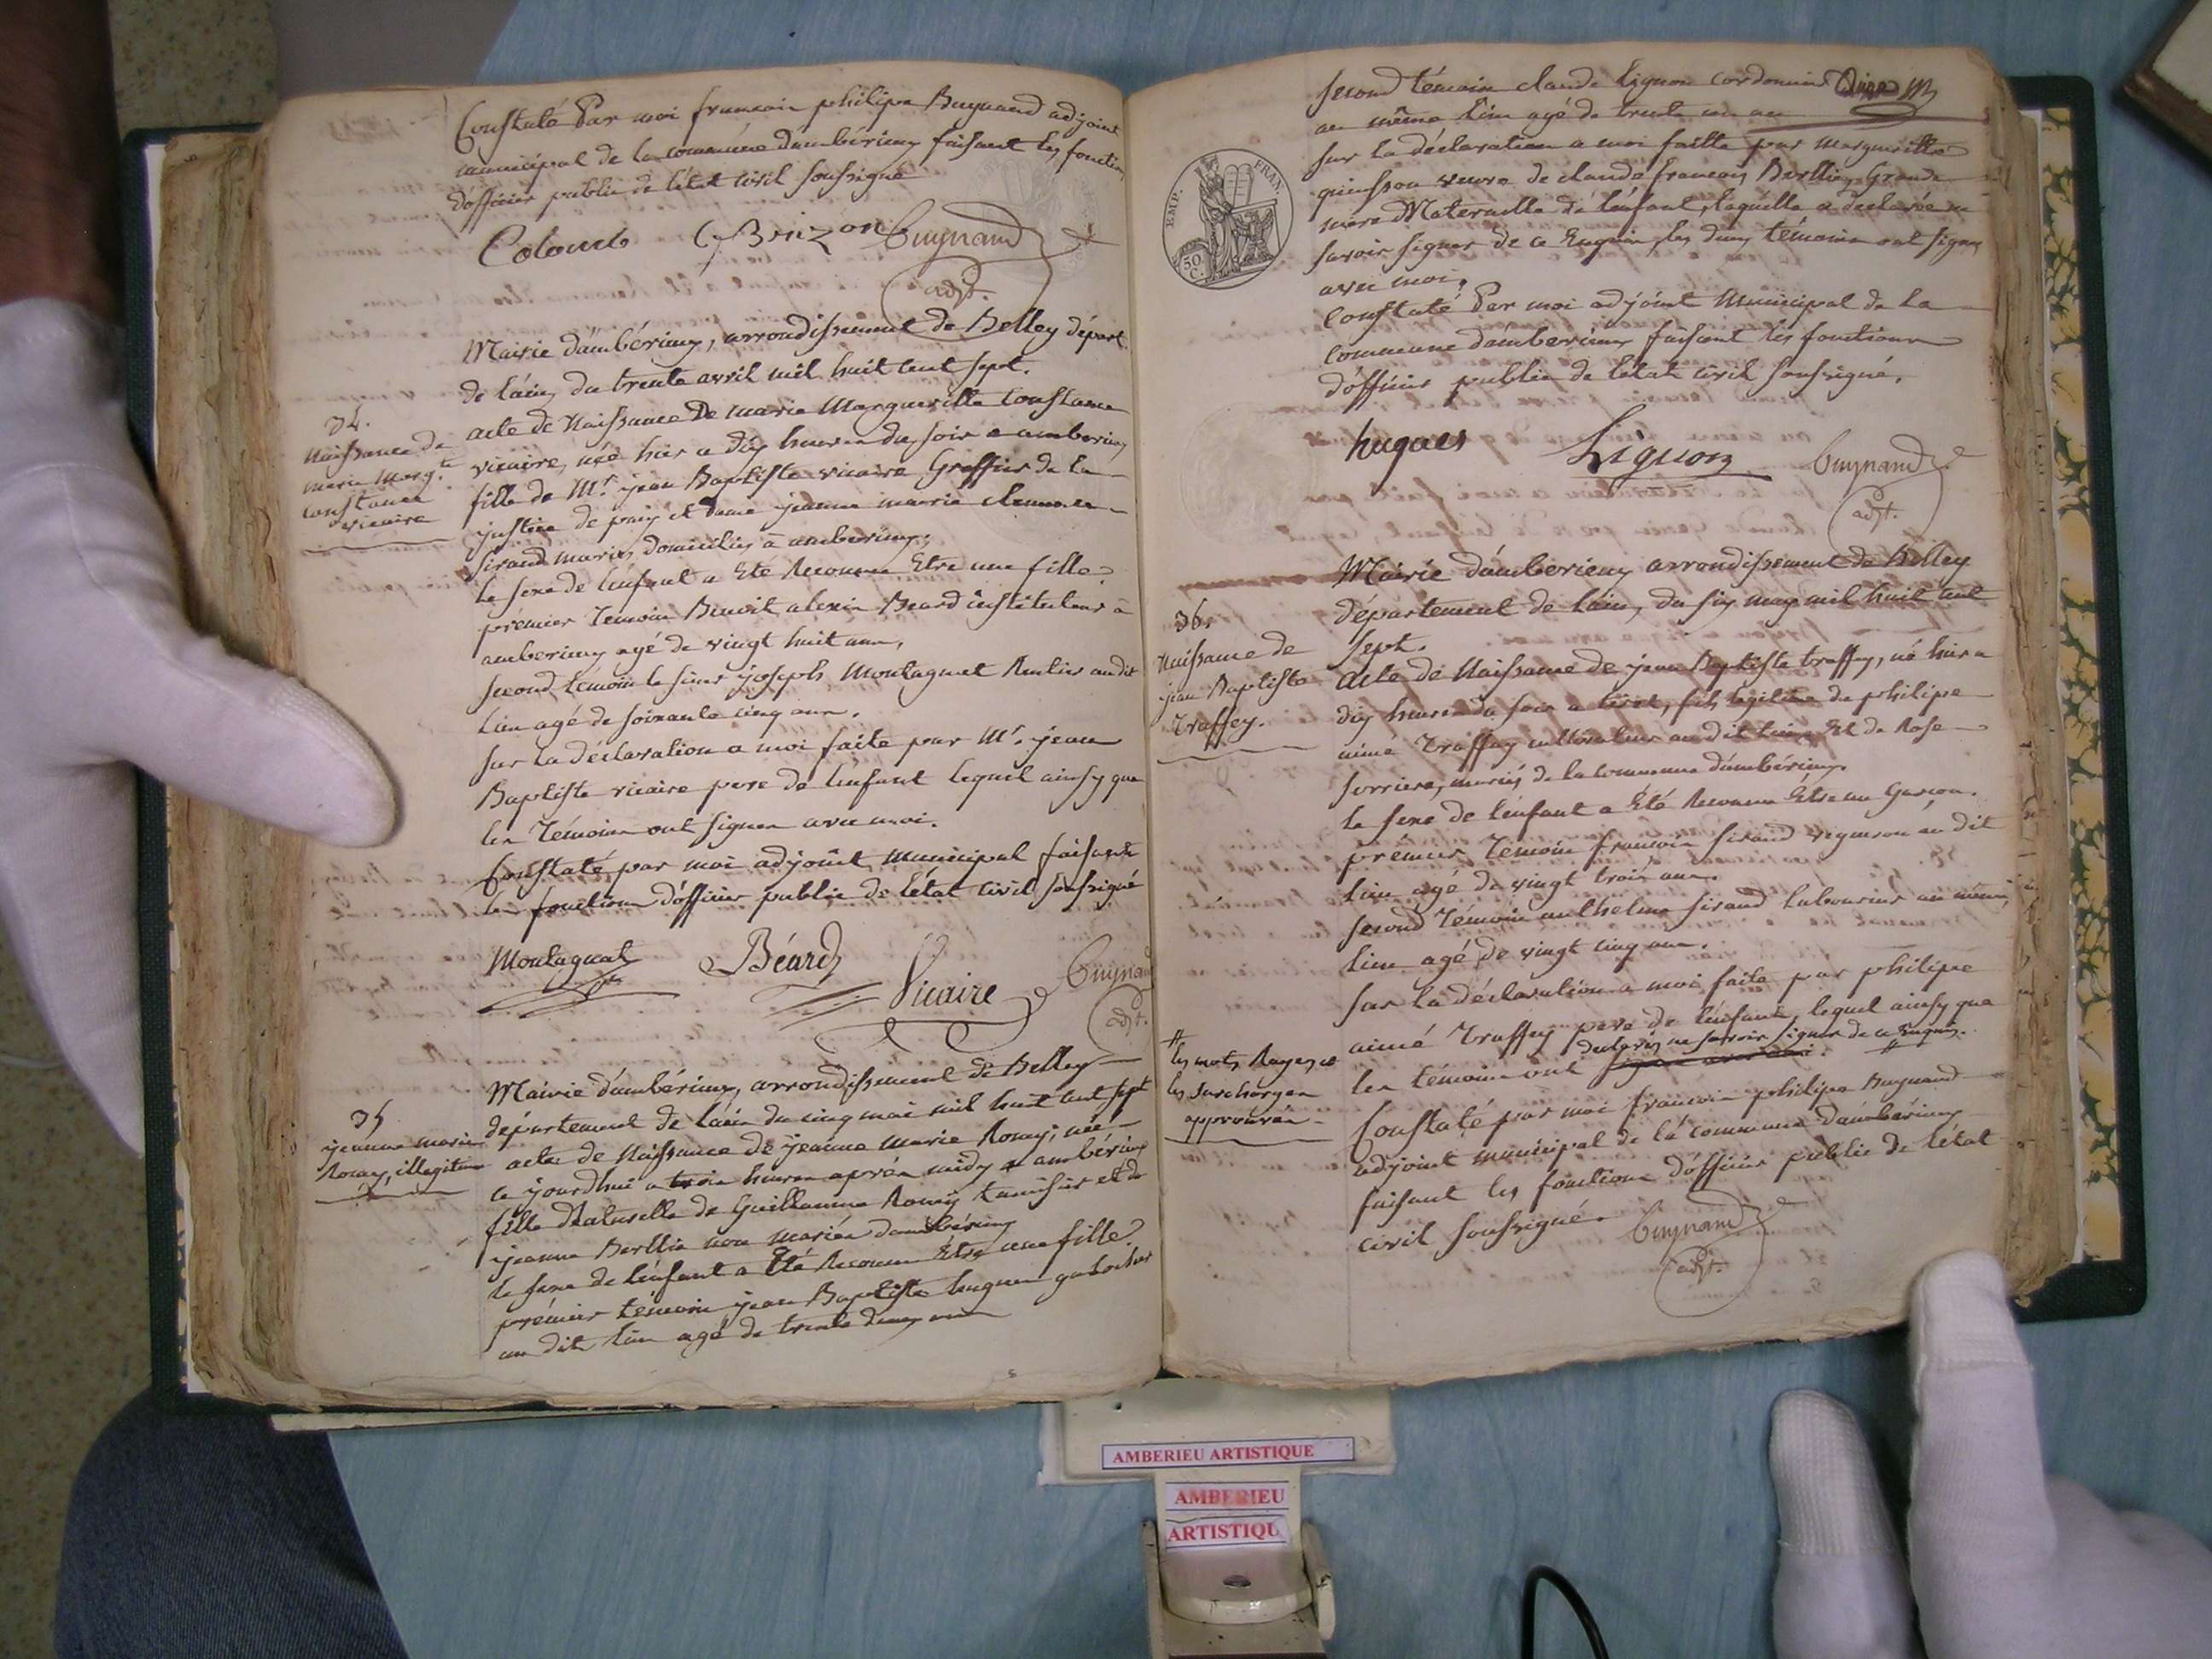 Constaté Par moi francois philipe Buynand adjoint
municipal de la commune dambérieux faisant les fonctions
d'officier public de l'état civil soussigné
Colomb Brizon Buynand
adjt.
Mairie d'ambérieux, arrondissement de Belley départ.
de l'ain, du trente avril mil huit cent sept.
34.
Naissance de
marie Margte
constance
vicaire
acte de Naissance De marie Margueritte Constance
vicaire, née hier a dix heures du soir a amberieux
fille de Mr. jean Baptiste vicaire Greffier de la
justice de paix et dame jeanne marie
sirand mariés domiciliés à amberieux,
le sexe de l'enfant a Eté Reconnu Etre une fille.
prémier Temoin Benoit alexis Beard instituteur à
amberieux agé de vingt huit ans,
second témoin le sieur joseph Montagnat Rentier audit
Lieu agé de soixante cinq ans.
sur la déclaration a moi faite par Mr. jean
Baptiste vicaire pere de l'enfant lequel ainsy que
les Témoins ont signer avec moi.
Constaté par moi adjoint municipal faisant
les fonctions d'officier public de l'état civil soussigné
Montagnat Béard Vicaire Buynand
adjt.
Mairie d'ambérieux, arrondissement de Belley
35
jeanne marie
Romy, illegitime
département de l'ain du cinq mai mil huit cent sept
acte de Naissance de jeanne marie Romy, née
ce jourdhui a trois heures après midy a ambérieux
fille Naturelle de Guillaume Romy et de
jeanne Berllie non mariés dambérieux
le sexe de l'enfant a Eté Reconnu Etre une fille.
prémier témoin jean Baptiste hugues
au dit lieu agé de trente deux ans
second témoin claude Lignon cordonnier
au même lieu agé de trente un an
sur la déclaration a moi faitte par Margueritte
veuve de claude francois Berllie, Grande
mere Maternelle de l'enfant, laquelle a declarée ne
savoir signer de ce Enquise, les deux témoins ont signer
avec moi.
EMP. FRAN.
50 C.
Constaté Par moi adjoint Municipal de la
commune d'amberieux faisant les fonctions
d'officier public de l'état civil soussigné.
hugues Lignon Buynand
adjt.
Mairie d'amberieux arrondissement de Belley
département de l'ain, du six may mil huit cent
sept.
36.
Naissance de
jean Baptiste
Traffey.
acte de Naissance de jean Baptiste traffey, né hier a
dix heures du soir a tiret, fils legitime de philipe
aimé Traffey cultivateur audit lieu Et de Rose
serriere, mariés de la commune d'ambérieux.
le sexe de l'enfant a Eté Reconnu Etre un Garçon.
prémier Témoin francois sirand vigneron au dit
Lieu agé de vingt trois ans.
second Témoin anthelme sirand laboureur au même
lieu agé de vingt cinq ans.
sur la déclaration a moi faite par philipe
aimé Traffey pere de l'enfant, lequel ainsy que
declarés ne savoir signer de ce Enquis. #
les témoins ont signer avec moi.
#
les mots Rayes et
les surcharges
approuvés
Constaté par moi francois philipe Buynand
adjoint municipal de la commune d'ambérieux
faisant les fonctions d'officier public de l'état
civil soussigné. Buynand
adjt.
AMBERIEU ARTISTIQUE
AMBERIEU
ARTISTIQU